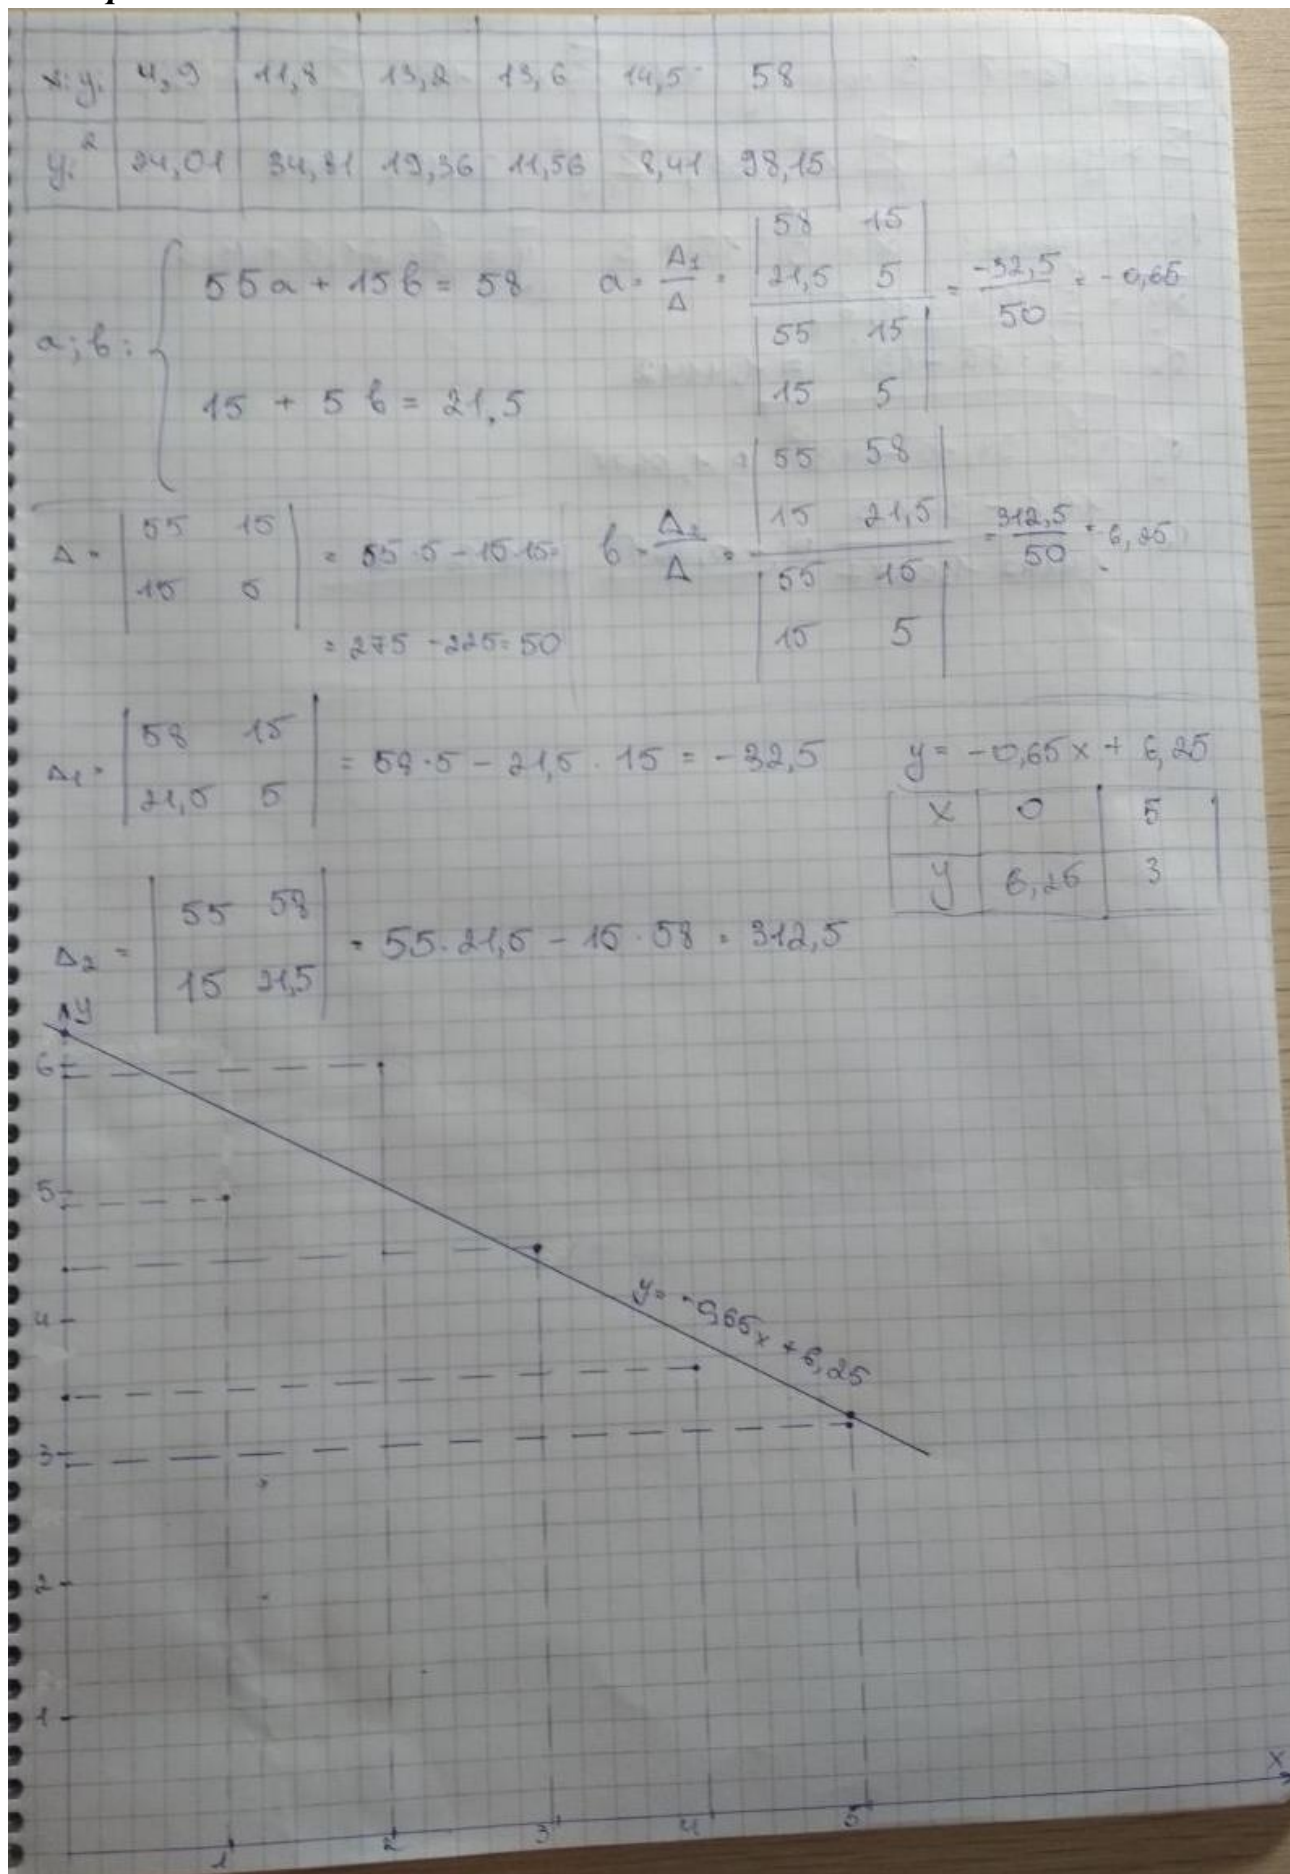 xᵢyᵢ 4,9 11,8 13,2 13,6 14,5 58
yᵢ² 24,01 34,81 19,36 11,56 8,41 98,15
a; b: { 55a + 15b = 58
15 + 5b = 21,5
a = Δ₁/Δ = |58 15; 21,5 5| / |55 15; 15 5| = -32,5/50 = -0,65
Δ = |55 15; 15 5| = 55·5 - 15·15 =
= 275 - 225 = 50
b = Δ₂/Δ = |55 58; 15 21,5| / |55 15; 15 5| = 312,5/50 = 6,25
Δ₁ = |58 15; 21,5 5| = 58·5 - 21,5·15 = -32,5
y = -0,65x + 6,25
x 0 5
y 6,25 3
Δ₂ = |55 58; 15 21,5| = 55·21,5 - 15·58 = 312,5
y
6
5
4
3
2
1
y = -0,65x + 6,25
1 2 3 4 5 x